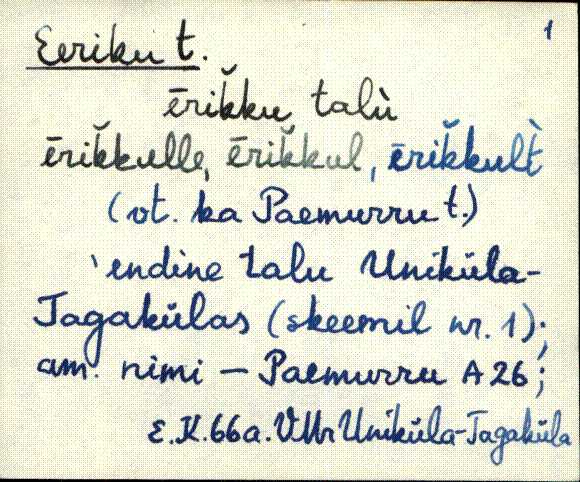 1
Eeriku t.
ērik̆ku talù
ērik̆kulle, ērik̆kul, ērik̆kult̀
(vt. ka Paemurru t.)
'endine talu Uniküla-
Tagakülas (skeemil nr. 1);
am. nimi – Paemurru A 26;
E.K. 66a. VMr Uniküla-Tagaküla